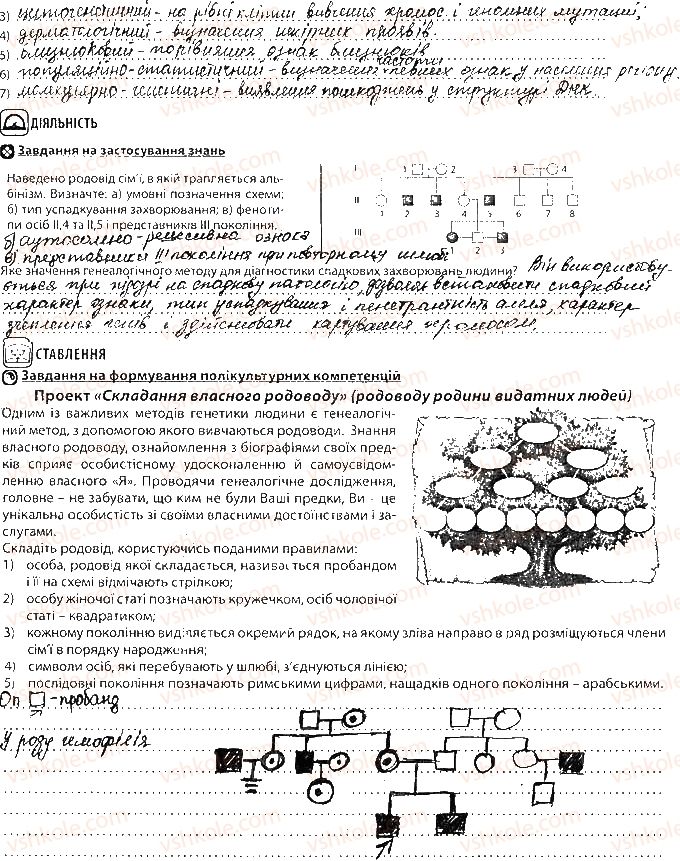 3) цитогенетичний - на рівні клітин вивчення хромос. і геномних мутацій;
4) дерматологічний - визначення шкірних проявів.
5) близнюковий - порівняння ознак близнюків
частоти
6) популяційно-статистичний - визначення певних ознак у населення регіону.
7) молекулярно-генетичні - виявлення пошкоджень у структурі ДНК.
ДІЯЛЬНІСТЬ
Завдання на застосування знань
Наведено родовід сім'ї, в якій трапляється аль-
бінізм. Визначте: а) умовні позначення схеми;
б) тип успадкування захворювання; в) феноти-
пи осіб II,4 та II,5 і представників III покоління.
I 1 2 3 4
II 1 2 3 4 5 6 7 8
III 1 2 3
б) аутосомно-рецесивна ознака
в) представники III покоління при повторному шлюбі
Яке значення генеалогічного методу для діагностики спадкових захворювань людини? Він використову-
ється при підозрі на спадкову патологію, дозволяє встановити спадковий
характер ознаки, тип успадкування і пенетрантність алеля, характер
зчеплення генів і здійснювати картування хромосом.
СТАВЛЕННЯ
Завдання на формування полікультурних компетенцій
Проект «Складання власного родоводу» (родоводу родини видатних людей)
Одним із важливих методів генетики людини є генеалогіч-
ний метод, з допомогою якого вивчаються родоводи. Знання
власного родоводу, ознайомлення з біографіями своїх пред-
ків сприяє особистісному удосконаленню й самоусвідом-
ленню власного «Я». Проводячи генеалогічне дослідження,
головне – не забувати, що ким не були Ваші предки, Ви - це
унікальна особистість зі своїми власними достоїнствами і за-
слугами.
Складіть родовід, користуючись поданими правилами:
1) особа, родовід якої складається, називається пробандом
і її на схемі відмічають стрілкою;
2) особу жіночої статі позначають кружечком, осіб чоловічої
статі – квадратиком;
3) кожному поколінню виділяється окремий рядок, на якому зліва направо в ряд розміщуються члени
сім'ї в порядку народження;
4) символи осіб, які перебувають у шлюбі, з'єднуються лінією;
5) послідовні покоління позначають римськими цифрами, нащадків одного покоління – арабськими.
Оп - пробанд
У роду гемофілія
vshkole.com